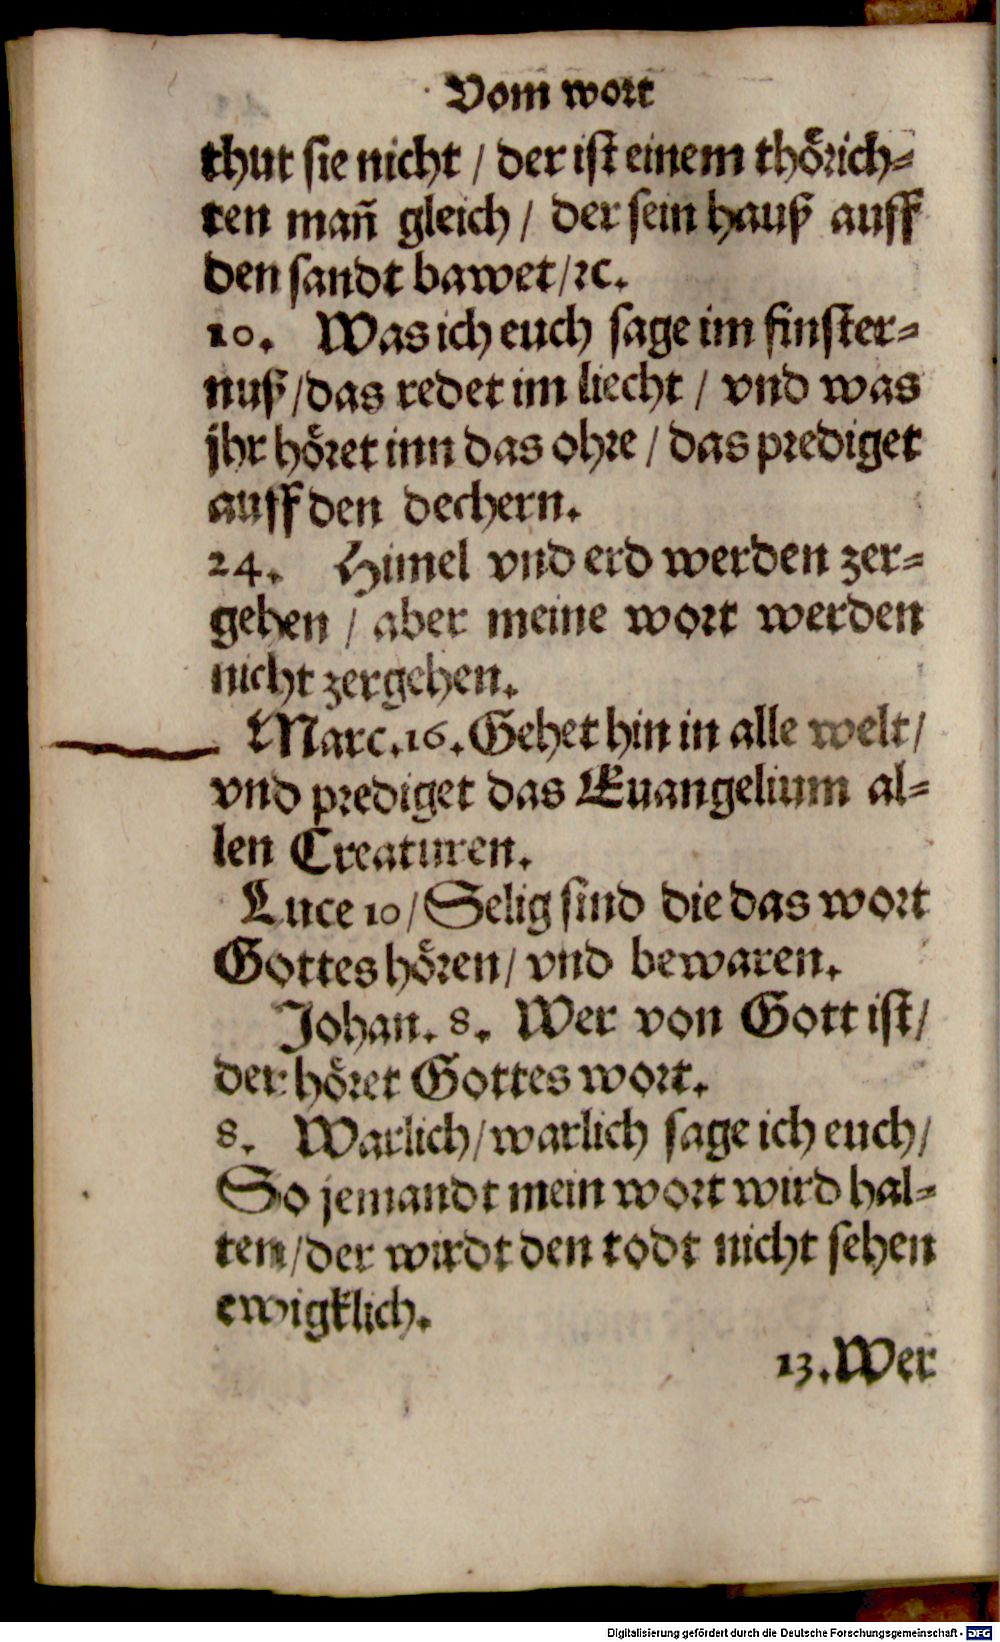 Vom wort
thut sie nicht / der ist einem thörich⸗
ten mañ gleich / der sein hauß auff
den sandt bawet / ꝛc.
10. Was ich euch sage im finster⸗
nuß / das redet im liecht / vnd was
jhr höret inn das ohre / das prediget
auff den dechern.
24. Himel vnd erd werden zer⸗
gehen / aber meine wort werden
nicht zergehen.
Marc. 16. Gehet hin in alle welt /
vnd prediget das Euangelium al⸗
len Creaturen.
Luce 10 / Selig sind die das wort
Gottes hören / vnd bewaren.
Johan. 8. Wer von Gott ist /
der höret Gottes wort.
8. Warlich / warlich sage ich euch /
So jemandt mein wort wird hal⸗
ten / der wirdt den todt nicht sehen
ewigklich.
13. Wer
Digitalisierung gefördert durch die Deutsche Forschungsgemeinschaft - DFG